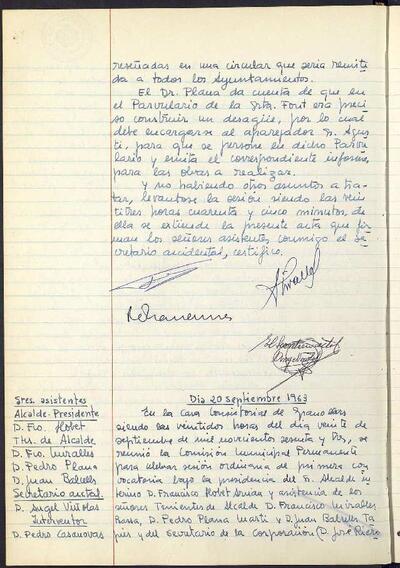 reseñadas en una circular que seria remiti-
da a todos los Ayuntamientos.
El Dr. Plana da cuenta de que en
el Parvulario de la Srta. Font era preci
so construir un desagüe, por lo cual
debe encargarse al aparejador Sr. Agus
ti, para que se persone en dicho Parvu
lario y emita el correspondiente informe,
para las obras a realizar.
Y no habiendo otros asuntos a tra-
tar, levantose la sesión siendo las vein
titres horas cuarenta y cinco minutos, de
ella se extiende la presente acta que fir
man los señores asistentes conmigo el Se
cretario accidental, certifico.
El Secretario actal
Sres. asistentes
Alcalde-Presidente
D. Fco. Llobet
Tts. de Alcalde
D. Fco. Miralles
D. Pedro Plana
D. Juan Balcells
Secretario acctal.
D. Angel Viñolas
Interventor
D. Pedro Casanovas
Dia 20 septiembre 1963
En la Casa Consistorial de Granollers
siendo las veintidos horas del dia veinte de
septiembre de mil novecientos sesenta y tres, se
reunió la Comisión Municipal Permanente
para celebrar sesión ordinaria de primera con
vocatoria bajo la presidencia del Sr. Alcalde in
terino D. Francisco Llobet Arnan y asistencia de los
señores Tenientes de Alcalde D. Francisco Miralles
D. Pedro Plana Marti y D. Juan Balcells Ta
y del Secretario de la Corporación (D. José Riera